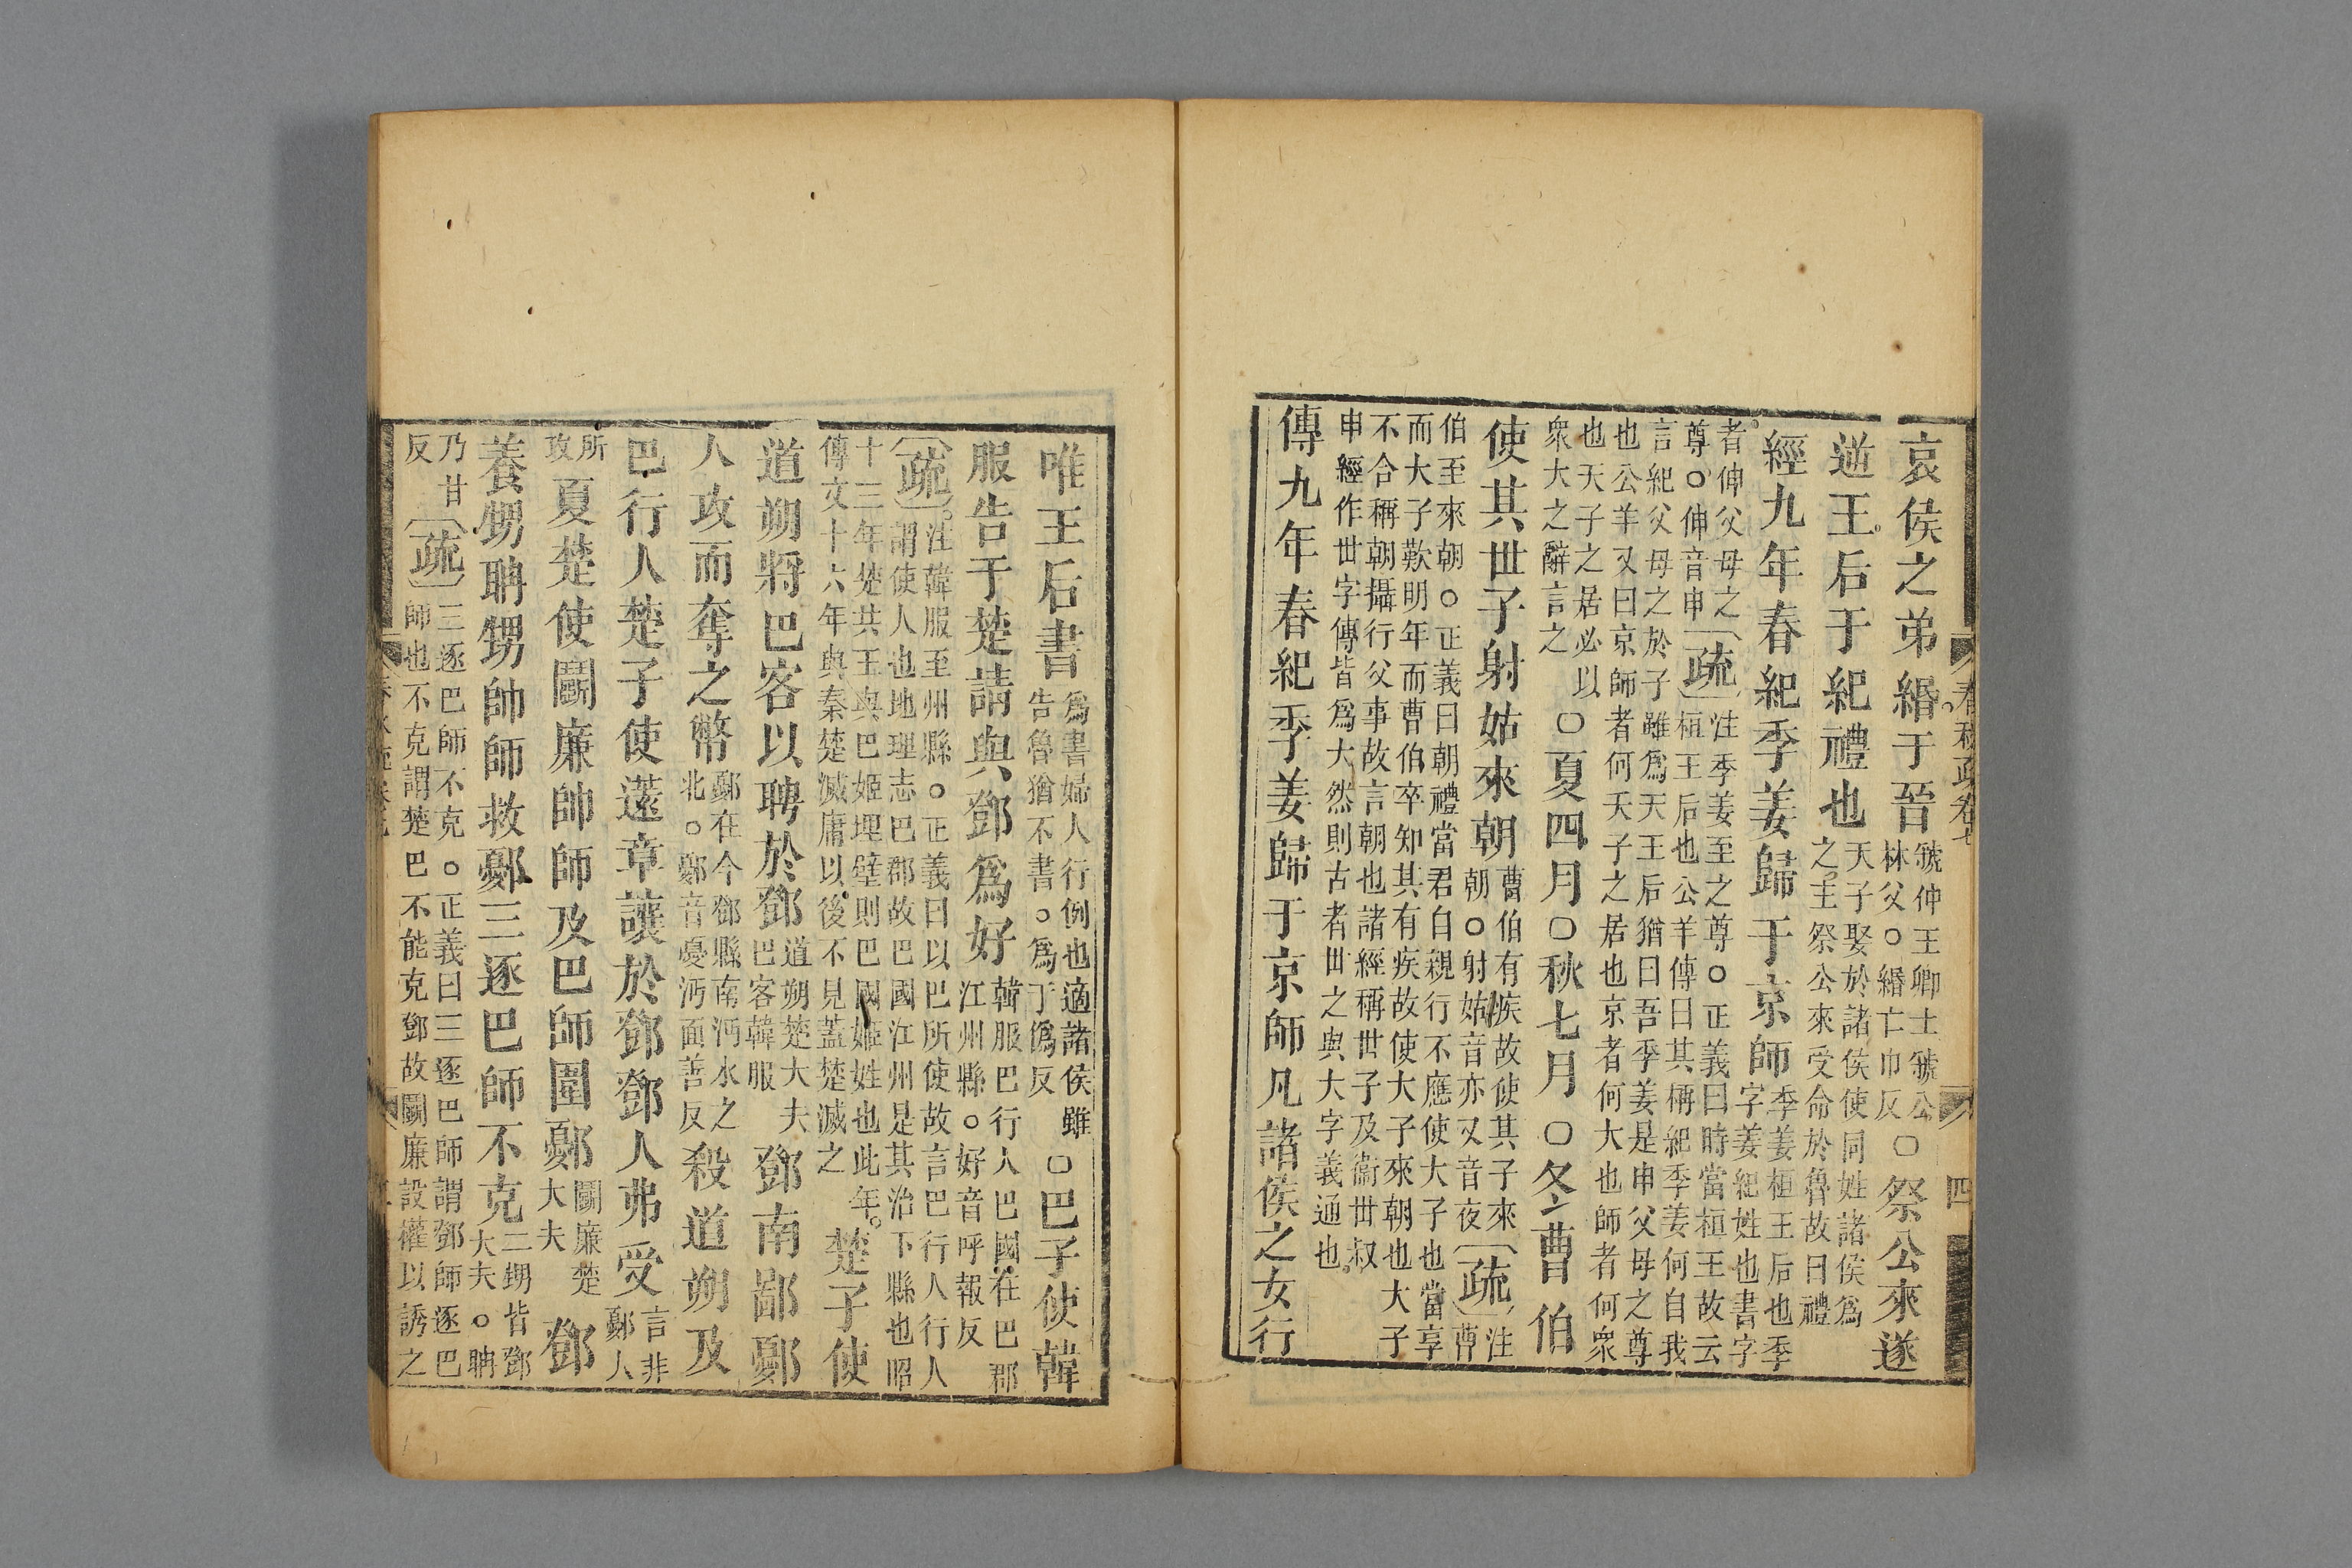 哀侯之弟緡于晉虢仲王卿士虢公
林父○緡亡巾反○祭公來遂
逆王后于紀禮也天子娶於諸侯使同姓諸侯爲
之主祭公來受命於魯故曰禮
經九年春紀季姜歸于京師季姜桓王后也季
字姜紀姓也書字
者伸父母之
尊○伸音申疏注季姜至之尊○正義曰時當桓王故云
桓王后也公羊傳曰其稱紀季姜何自我
言紀父母之於子雖爲天王后猶曰吾季姜是申父母之尊
也公羊又曰京師者何天子之居也京者何大也師者何眾
也天子之居必以
眾大之辭言之○夏四月○秋七月○冬曹伯
使其世子射姑來朝曹伯有疾故使其子來
朝○射姑音亦又音夜疏注
曹
伯至來朝○正義曰朝禮當君自親行不應使大子也當享
而大子歎明年而曹伯卒知其有疾故使大子來朝也大子
不合稱朝攝行父事故言朝也諸經稱世子及衞世叔
申經作世字傳皆爲大然則古者世之與大字義通也
傳九年春紀季姜歸于京師凡諸侯之女行
春秋疏卷七
四
唯王后書爲書婦人行例也適諸侯雖
告魯猶不書○爲丁僞反○巴子使韓
服告于楚請與鄧爲好韓服巴行人巴國在巴郡
江州縣○好音呼報反
疏注韓服至州縣○正義曰以巴所使故言巴行人行人
謂使人也地理志巴郡故巴國江州是其治下縣也昭
十三年楚共王與巴姬埋璧則巴國姬姓也此年
傳文十六年與秦楚滅庸以後不見蓋楚滅之楚子使
道朔將巴客以聘於鄧道朔楚大夫
巴客韓服鄧南鄙鄾
人攻而奪之幣鄾在今鄧縣南沔水之
北○鄾音憂沔面善反殺道朔及
巴行人楚子使薳章讓於鄧鄧人弗受言非
鄾人
所
攻夏楚使鬭廉帥師及巴師圍鄾鬭廉楚
大夫鄧
養甥聃甥帥師救鄾三逐巴師不克二甥皆鄧
大夫○聃
乃甘
反疏三逐巴師不克○正義曰三逐巴師謂鄧師逐巴
師也不克謂楚巴不能克鄧故鬭廉設權以誘之